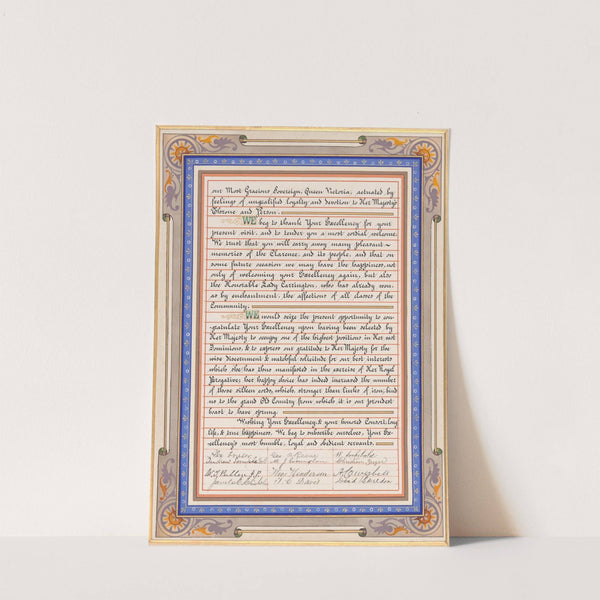 our Most Gracious Sovereign, Queen Victoria, actuated by
feelings of unqualified loyalty and devotion to Her Majesty's
Throne and Person.
WE beg to thank Your Excellency for your
present visit, and to tender you a most cordial welcome.
We trust that you will carry away many pleasant
memories of the Clarence, and its people, and that on
some future occasion we may have the happiness, not
only of welcoming your Excellency again, but also
the Honorable Lady Carrington, who has already won,
as by enchantment, the affections of all classes of the
Community.
WE would seize the present opportunity to con-
-gratulate Your Excellency upon having been selected by
Her Majesty to occupy one of the highest positions in Her vast
Dominions, & to express our gratitude to Her Majesty for the
wise discernment & watchful solicitude for our best interests
which she has thus manifested in the exercise of Her Royal
Prerogative; her happy choice has indeed increased the number
of those silken cords, which, stronger than links of iron, bind
us to the grand Old Country from which it is our proudest
boast to have sprung.
Wishing Your Excellency, & your honored Consort, long
life, & true happiness, We beg to subscribe ourselves, Your Ex-
cellency's most humble, loyal and obedient servants.
Henderson